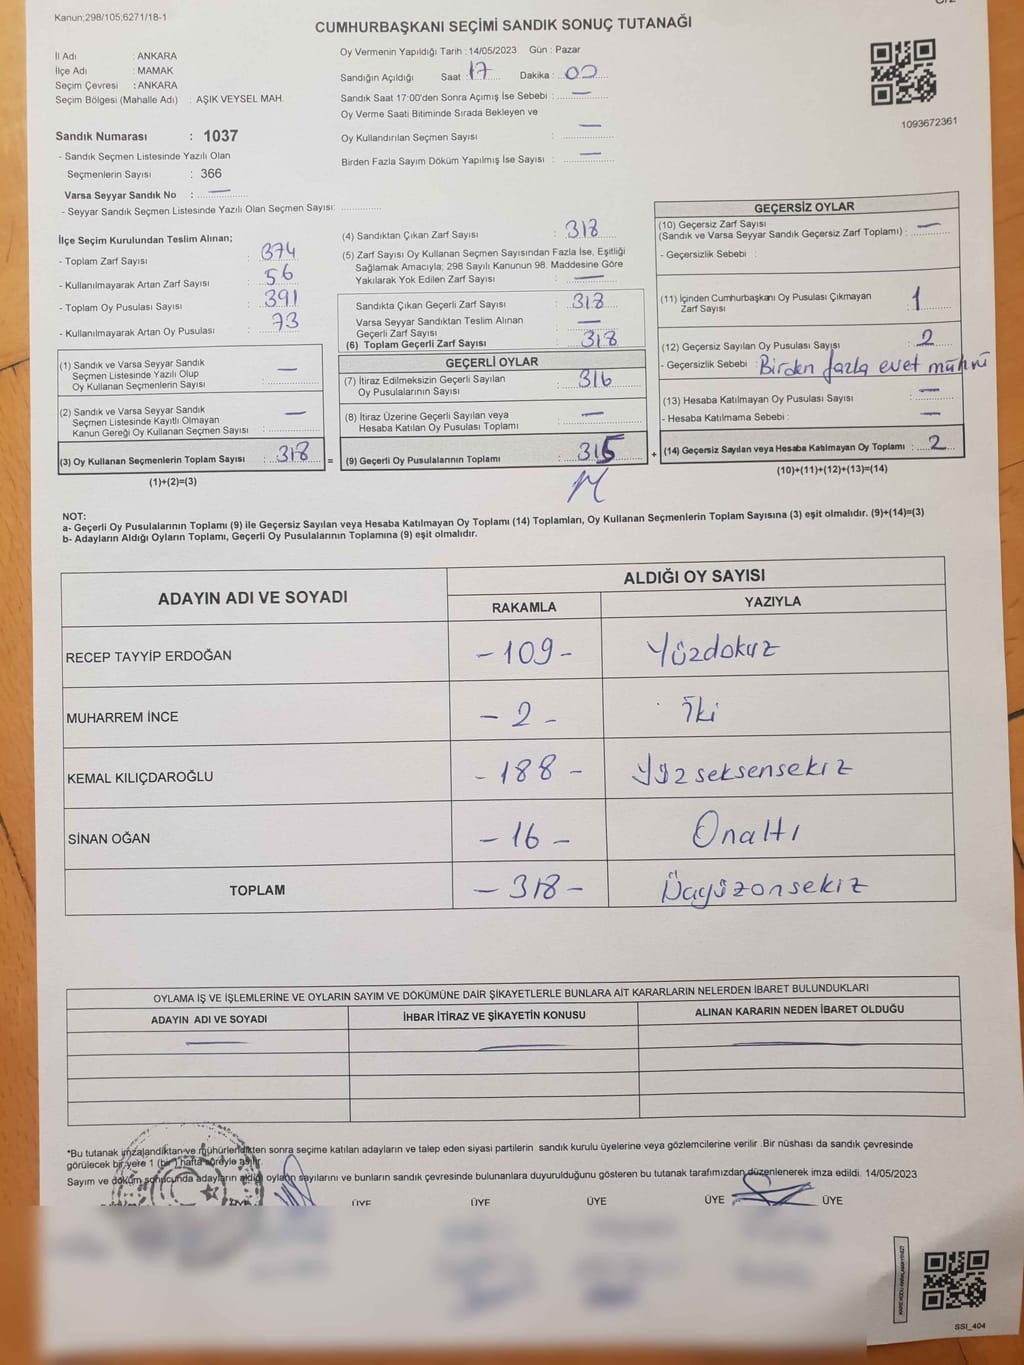 Kanun;298/105;6271/18-1
CUMHURBAŞKANI SEÇİMİ SANDIK SONUÇ TUTANAĞI
İl Adı : ANKARA
İlçe Adı : MAMAK
Seçim Çevresi : ANKARA
Seçim Bölgesi (Mahalle Adı) : AŞIK VEYSEL MAH.
Sandık Numarası : 1037
- Sandık Seçmen Listesinde Yazılı Olan
Seçmenlerin Sayısı : 366
Varsa Seyyar Sandık No : —
- Seyyar Sandık Seçmen Listesinde Yazılı Olan Seçmen Sayısı: ..............
Oy Vermenin Yapıldığı Tarih : 14/05/2023 Gün : Pazar
Sandığın Açıldığı Saat : 17 Dakika : 00
Sandık Saat 17:00'den Sonra Açımış İse Sebebi : —
Oy Verme Saati Bitiminde Sırada Bekleyen ve
Oy Kullandırılan Seçmen Sayısı : —
Birden Fazla Sayım Döküm Yapılmış İse Sayısı : —
1093672361
İlçe Seçim Kurulundan Teslim Alınan;
- Toplam Zarf Sayısı : 374
- Kullanılmayarak Artan Zarf Sayısı : 56
- Toplam Oy Pusulası Sayısı : 391
- Kullanılmayarak Artan Oy Pusulası : 73
(1) Sandık ve Varsa Seyyar Sandık
Seçmen Listesinde Yazılı Olup
Oy Kullanan Seçmenlerin Sayısı : —
(2) Sandık ve Varsa Seyyar Sandık
Seçmen Listesinde Kayıtlı Olmayan
Kanun Gereği Oy Kullanan Seçmen Sayısı : —
(3) Oy Kullanan Seçmenlerin Toplam Sayısı : 318 =
(1)+(2)=(3)
(4) Sandıktan Çıkan Zarf Sayısı : 318
(5) Zarf Sayısı Oy Kullanan Seçmen Sayısından Fazla İse, Eşitliği
Sağlamak Amacıyla; 298 Sayılı Kanunun 98. Maddesine Göre
Yakılarak Yok Edilen Zarf Sayısı : —
Sandıkta Çıkan Geçerli Zarf Sayısı : 318
Varsa Seyyar Sandıktan Teslim Alınan
Geçerli Zarf Sayısı : —
(6) Toplam Geçerli Zarf Sayısı : 318
GEÇERLİ OYLAR
(7) İtiraz Edilmeksizin Geçerli Sayılan
Oy Pusulalarının Sayısı : 316
(8) İtiraz Üzerine Geçerli Sayılan veya
Hesaba Katılan Oy Pusulası Toplamı : —
(9) Geçerli Oy Pusulalarının Toplamı : 315 +
GEÇERSİZ OYLAR
(10) Geçersiz Zarf Sayısı
(Sandık ve Varsa Seyyar Sandık Geçersiz Zarf Toplamı) : —
- Geçersizlik Sebebi :
(11) İçinden Cumhurbaşkanı Oy Pusulası Çıkmayan
Zarf Sayısı : 1
(12) Geçersiz Sayılan Oy Pusulası Sayısı : 2
- Geçersizlik Sebebi : Birden fazla evet mührü
(13) Hesaba Katılmayan Oy Pusulası Sayısı : —
- Hesaba Katılmama Sebebi : —
(14) Geçersiz Sayılan veya Hesaba Katılmayan Oy Toplamı : 2
(10)+(11)+(12)+(13)=(14)
NOT:
a- Geçerli Oy Pusulalarının Toplamı (9) ile Geçersiz Sayılan veya Hesaba Katılmayan Oy Toplamı (14) Toplamları, Oy Kullanan Seçmenlerin Toplam Sayısına (3) eşit olmalıdır. (9)+(14)=(3)
b- Adayların Aldığı Oyların Toplamı, Geçerli Oy Pusulalarının Toplamına (9) eşit olmalıdır.
ADAYIN ADI VE SOYADI ALDIĞI OY SAYISI
RAKAMLA YAZIYLA
RECEP TAYYİP ERDOĞAN - 109 - Yüzdokuz
MUHARREM İNCE - 2 - İki
KEMAL KILIÇDAROĞLU - 188 - Yüzseksensekiz
SİNAN OĞAN - 16 - Onaltı
TOPLAM - 318 - Üçyüzonsekiz
OYLAMA İŞ VE İŞLEMLERİNE VE OYLARIN SAYIM VE DÖKÜMÜNE DAİR ŞİKAYETLERLE BUNLARA AİT KARARLARIN NELERDEN İBARET BULUNDUKLARI
ADAYIN ADI VE SOYADI İHBAR İTİRAZ VE ŞİKAYETİN KONUSU ALINAN KARARIN NEDEN İBARET OLDUĞU
*Bu tutanak imzalandıktan ve mühürlendikten sonra seçime katılan adayların ve talep eden siyasi partilerin sandık kurulu üyelerine veya gözlemcilerine verilir .Bir nüshası da sandık çevresinde
görülecek bir yere 1 (bir) hafta süreyle asılır.
Sayım ve döküm sonucunda adayların aldığı oyların sayılarını ve bunların sandık çevresinde bulunanlara duyurulduğunu gösteren bu tutanak tarafımızdan düzenlenerek imza edildi. 14/05/2023
ÜYE ÜYE ÜYE ÜYE ÜYE
SSI_404